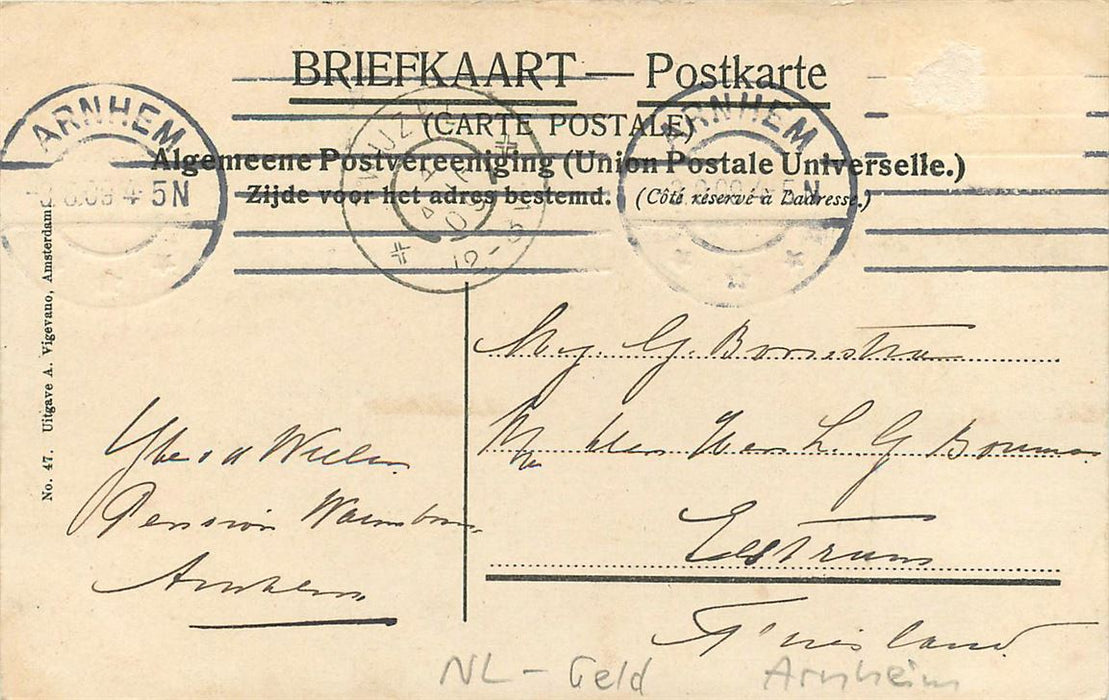 BRIEFKAART — Postkarte
(CARTE POSTALE)
Algemeene Postvereeniging (Union Postale Universelle.)
Zijde voor het adres bestemd. (Côté réservé à Ladresse.)
ARNHEM
09 4-5N
ARNHEM
09 4-5N
12-5
No. 47. Uitgave A. Vigevano, Amsterdam.
Mej. G. Boonstra
den Heer L. G. Bouma
Eestrum
Friesland.
Pension
Arnhem
NL - Geld Arnheim